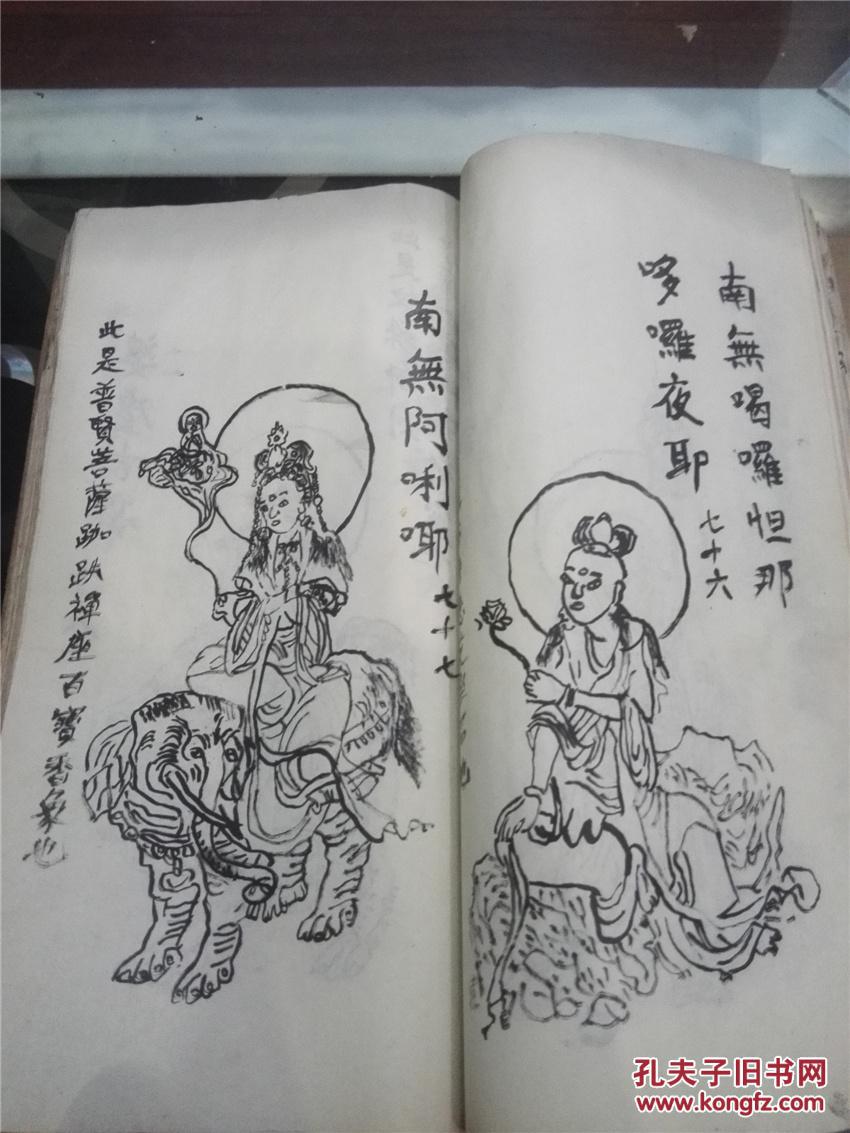 南無喝囉怛那
哆囉夜耶 七十六
南無阿唎哪 七十七
此是普賢菩薩跏趺禪座百寶香象也
孔夫子旧书网
www.kongfz.com